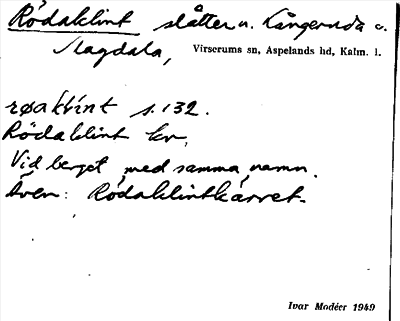 Rödaklint slåtter u. Långeruda o.
Slagdala, Virserums sn, Aspelands hd, Kalm. l.
røaklint s. 132.
Rödaklint kv,
Vid berget med samma namn.
Även: Rödaklintkärret.
Ivar Modéer 1949